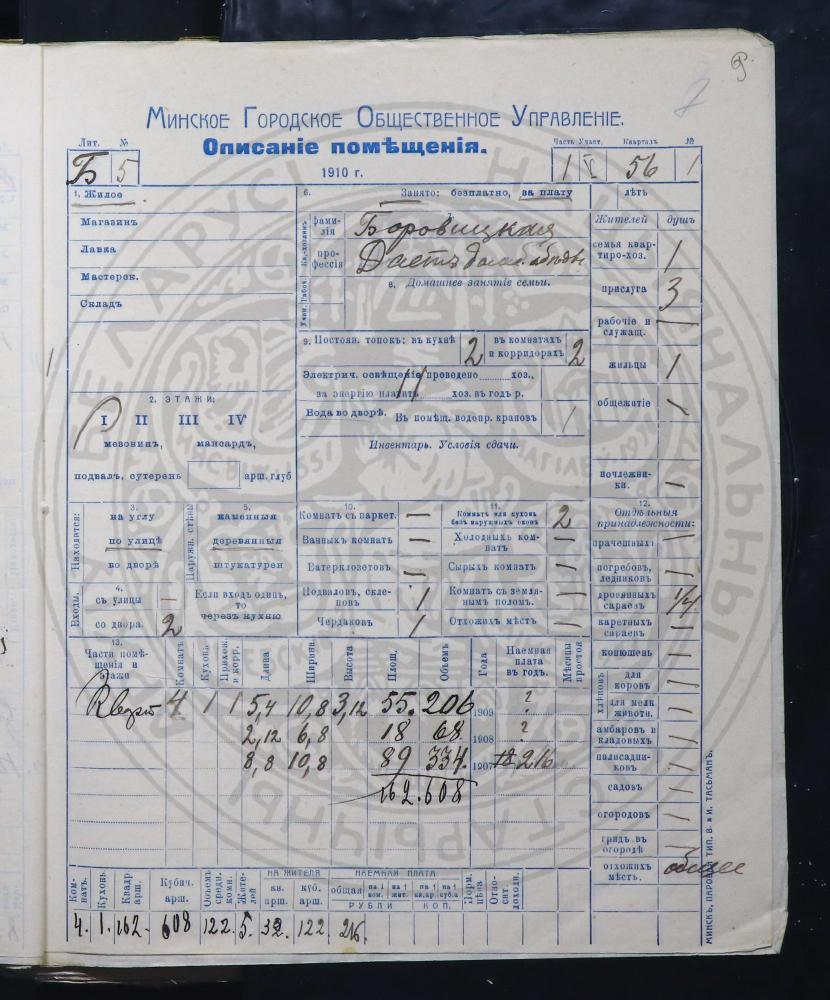 9.
Минское Городское Общественное Управленіе.
Описаніе помѣщенія.
1910 г.
Лит. №
Б 5
Часть Участ. Кварталъ №
1 V 56 1
1. Жилое
Магазинъ
Лавка
Мастерск.
Складъ
6. Занято: безплатно, за плату
лѣтъ
Кв.-хозяинъ
фамилія Боровицкая
профессія Даетъ домаш. обѣды
Учен. Рабоч.
в. Домашнее занятіе семьи.
9. Постоян. топокъ: въ кухнѣ 2 въ комнатахъ и корридорахъ 2
Электрич. освѣщеніе проведено хоз.,
за энергію платитъ хоз. въ годъ р.
Вода во дворѣ. Въ помѣщ. водопр. крановъ
Инвентарь. Условія сдачи.
2. ЭТАЖИ:
I II III IV
мезонинъ, мансардъ,
подвалъ, сутеренъ арш. глуб
Жителей душъ
семья квартиро-хоз. 1
прислуга 3
рабочіе и служащ. —
жильцы 1
общежитіе —
ночлежники. —
Находится:
3. на углу
по улицѣ
во дворѣ
Входы.
4. съ улицы —
со двора. 2
Наружн. стѣны
5. каменныя
деревянныя
штукатурен
Если входъ одинъ, то черезъ кухню
10. Комнатъ съ паркет. —
Ванныхъ комнатъ —
Ватерклозетовъ —
Подваловъ, склеповъ 1
Чердаковъ 1
11. Комнатъ или кухонь безъ наружныхъ оконъ 2
Холодныхъ комнатъ —
Сырыхъ комнатъ
Комнатъ съ землянымъ поломъ.
Отхожихъ мѣстъ
12. Отдѣльныя принадлежности:
прачешныхъ
погребовъ, ледниковъ
дровяныхъ сараевъ 1/4
каретныхъ сараевъ
конюшенъ
хлѣвовъ
для коровъ
для мелк животн.
амбаровъ и кладовыхъ
палисадниковъ
садовъ
огородовъ
грядъ въ огородѣ
отхожихъ мѣстъ. общее
13. Части помѣщенія и этажи Комнатъ Кухонь Прихож. и корр. Длина Ширина Высота Площ. Объемъ Года Наемная плата въ годъ. Мѣсяцы простоя
4 1 1 5,4 10,8 3,12 55. 206 1909 ?
2,12 6,8 18 68 1908 ?
8,8 10,8 89 334. 1907 216
162.608
Комнатъ. Кухонь. Квадр. арш. Кубич. арш. Объемъ средн. комн. Жителей НА ЖИТЕЛЯ кв. арш. куб. арш. НАЕМНАЯ ПЛАТА общая на 1 ком. на 1 жит. на 1 кв.ар. на 1 куб.а. РУБЛИ КОП. Норм. цѣна Относит. доходн.
4. 1. 162. 608 122. 5. 32. 122 216.
МИНСКЪ, ПАРОВ. ТИП. В. и И. ТАСЬМАНЪ.